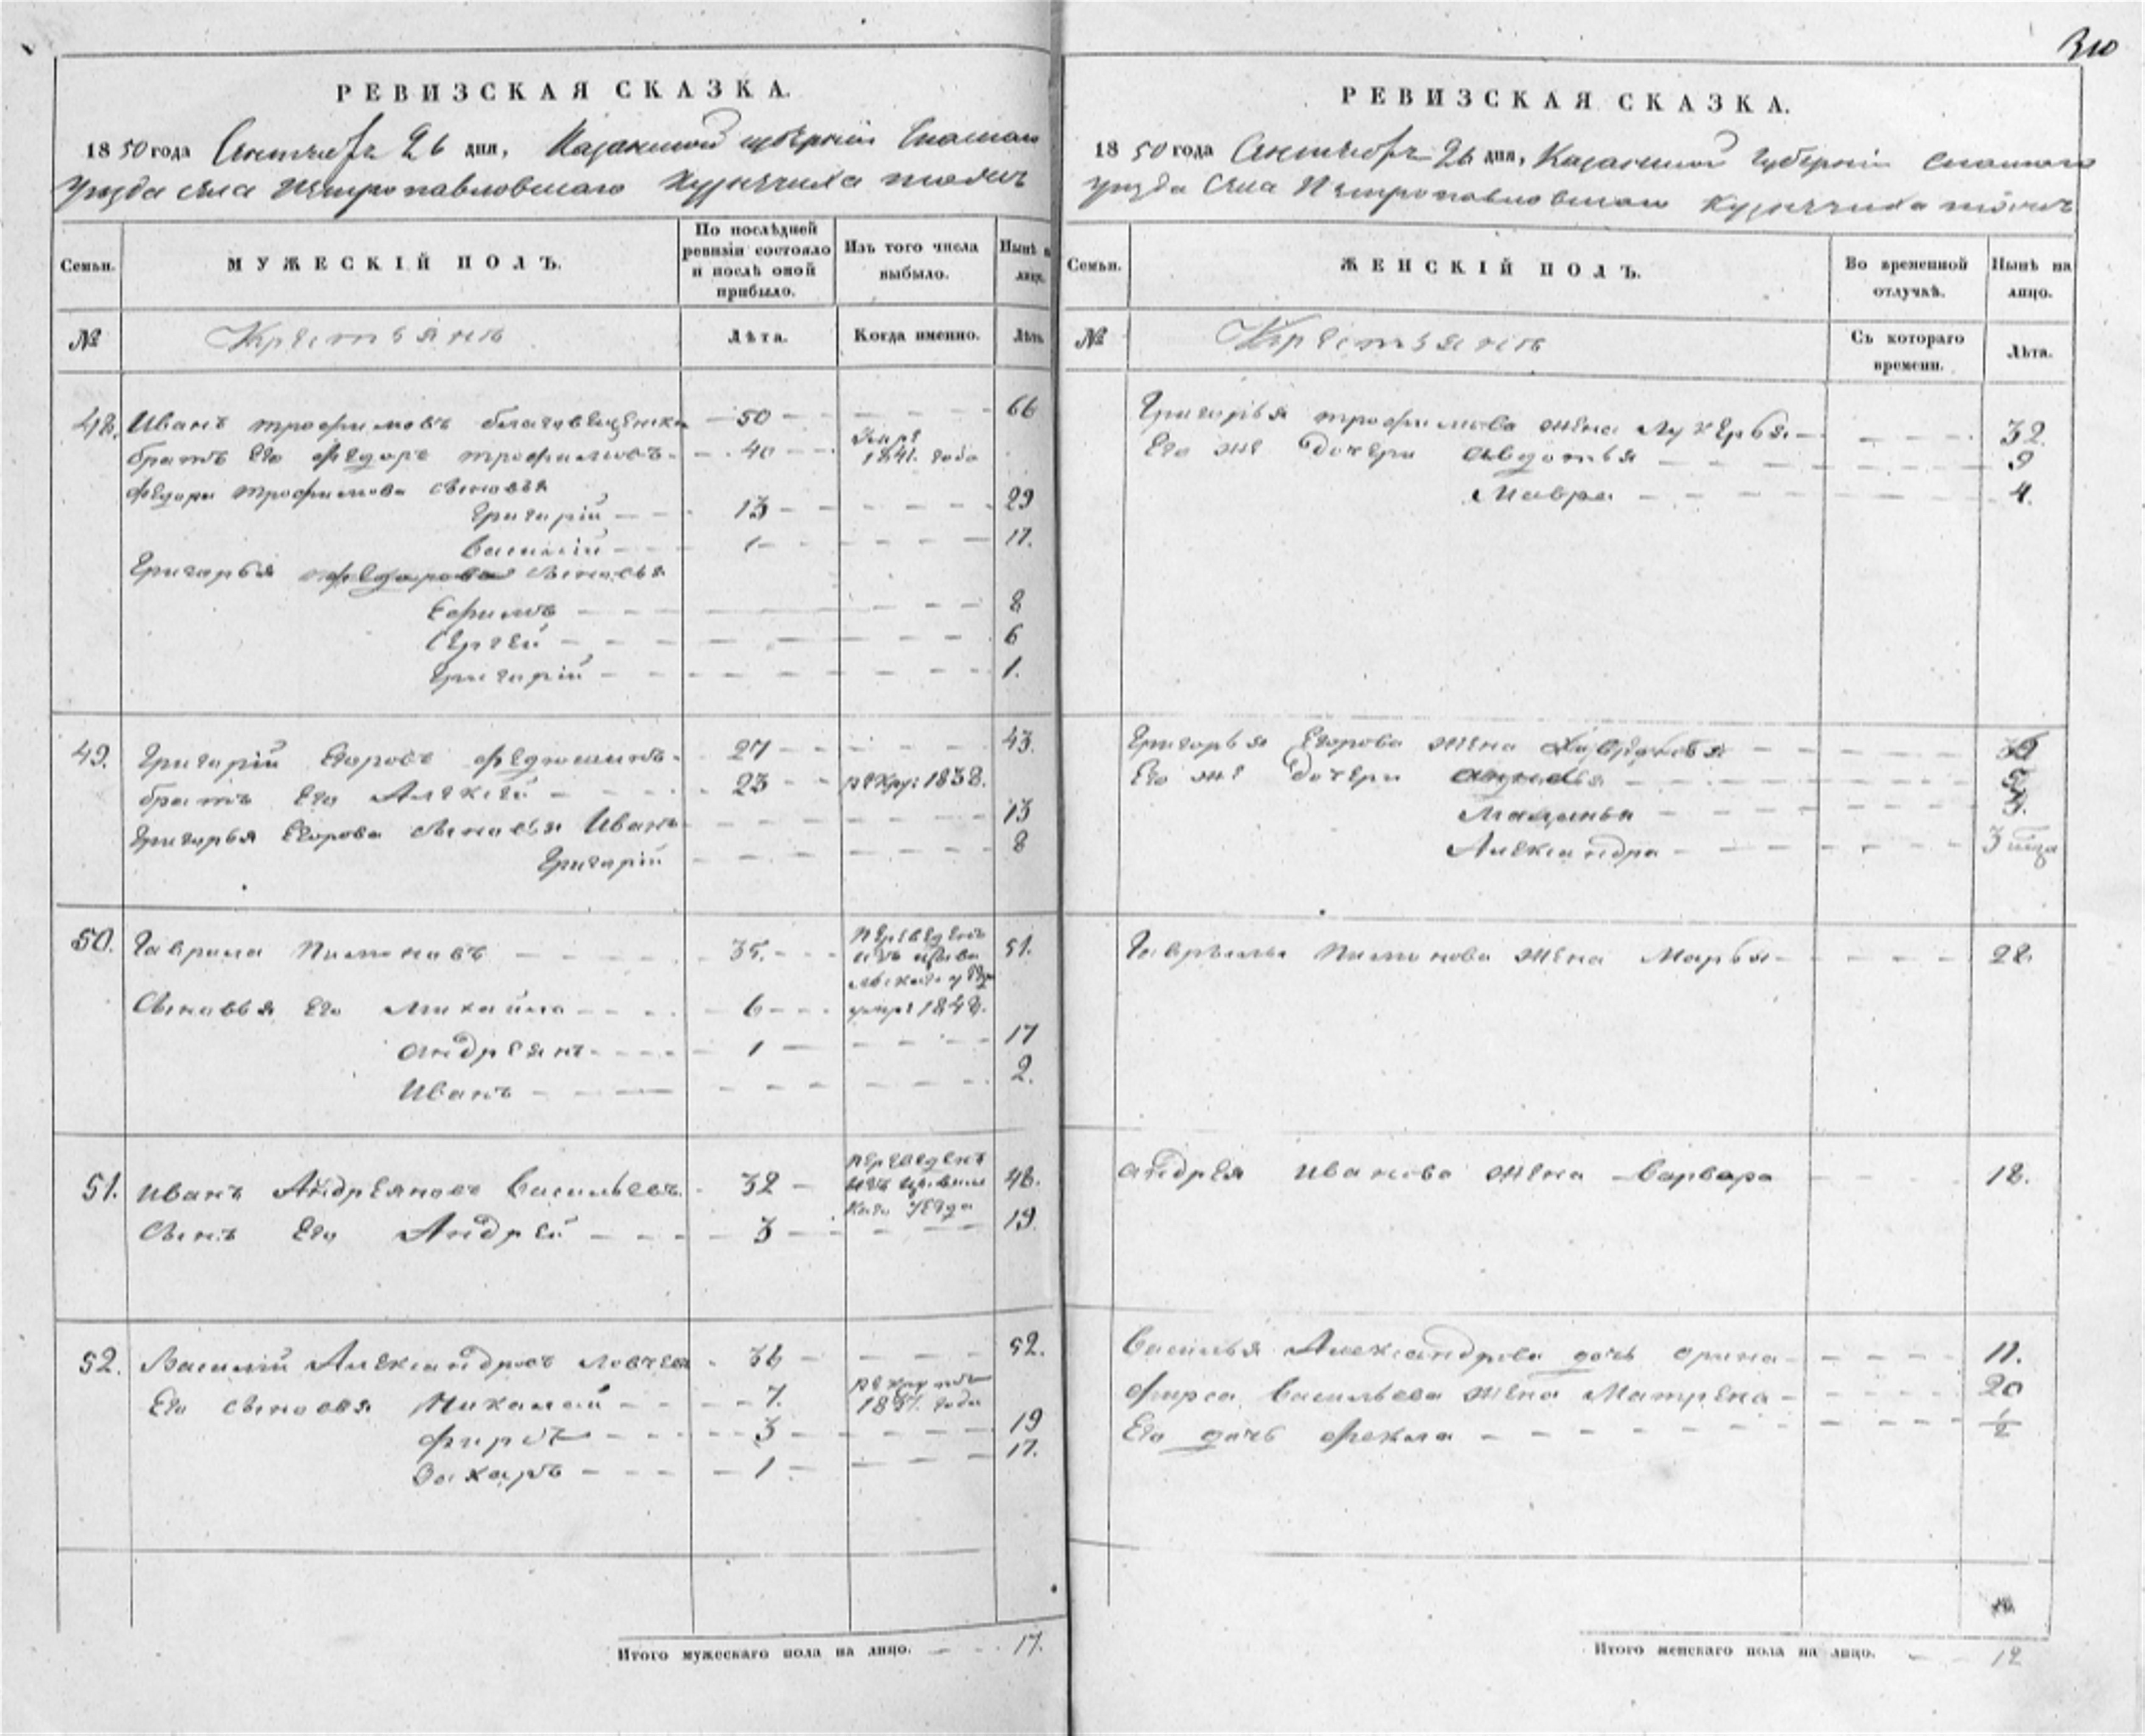 РЕВИЗСКАЯ СКАЗКА.
1850 года Сентября 26 дня, Казанской губернии Спаскаго
уезда села Петропавловскаго Кузнечиха тожъ
Семьи.
МУЖЕСКІЙ ПОЛЪ.
По послѣдней ревизіи состояло и послѣ оной прибыло.
Изъ того числа выбыло.
Нынѣ на лицо.
№
Крестьянъ
Лѣта.
Когда именно.
Лѣта.
48. Иванъ трофимовъ 50 66
братъ его федоръ трофимовъ 40 Умре 1841. года
федора трофимова сыновья
Григорій 13 29
Василій 1 17.
Григорья федорова сыновья
Ефимъ 8
Сергей 6
Григорій 1.
49. Григорій Егоровъ 27 43.
братъ его Алексей 23 рекру: 1838.
Григорья Егорова сыновья Иванъ 13
Григорій 8
50. Гаврила 35. переведенъ изъ 51.
Сыновья его Михайла 6 умре 1848.
андреянъ 1 17
Иванъ 2.
51. Иванъ Андреяновъ Васильевъ 32 переведенъ изъ уезда 48.
Сынъ его Андрей 3 19.
52. Василий Александровъ 36 52.
Его сыновья Николай 7. рекрутъ года
фирсъ 3 19
Захаръ 1 17.
Итого мужескаго пола на лицо. 17.
310
РЕВИЗСКАЯ СКАЗКА.
1850 года Сентября 26 дня, Казанской Губерніи Спаскаго
уезда Села Петропавловскаго Кузнечиха тожъ
Семьи.
ЖЕНСКІЙ ПОЛЪ.
Во временной отлучкѣ.
Нынѣ на лицо.
№
Крестьянъ
Съ котораго времени.
Лѣта.
Григорья трофимова жена Лукерья 32.
Его же дочери авдотья 9
Мавра 4.
Григорья Егорова жена
Его же дочери
Александра
жена Марья 28.
андрея Иванова жена Варвара 18.
Василья Александрова дочь орина 11.
фирса Васильева жена Матрена 20
Его дочь фекла 1/2
Итого женскаго пола на лицо. 12